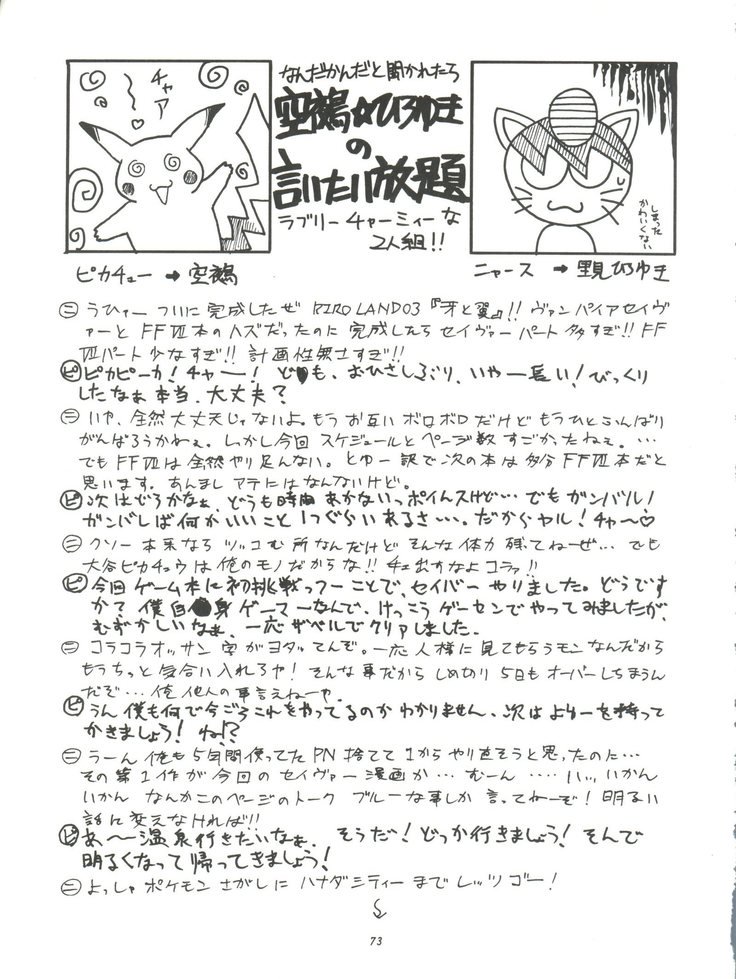 チャア
なんだかんだと聞かれたら
空鵺☆ひろゆき
の
言いたい放題
ラブリーチャーミィーな
2人組!!
しまった
かわいくない
ピカチュー → 空鵺
ニャース → 里見ひろゆき
㊁ うひァー ついに完成したぜ RIRO LAND03『牙と翼』!! ヴァンパイアセイヴ
ァーと FFⅦ本のハズだったのに 完成したらセイヴァーパート多すぎ!! FF
Ⅶパート少なすぎ!! 計画性無さすぎ!!
㋪ ピカピーカ! チャー! ども、おひさしぶり、いやー長い! びっくり
したなぁ本当、大丈夫?
㊁ いや、全然大丈夫じゃないよ。もうお互いボロボロだけど もうひとふんばり
がんばろうかねぇ。しかし今回スケジュールとページ数すごかったねぇ。…
でもFFⅦは全然やり足んない。とゆー訳で次の本は多分FFⅦ本だと
思います。あんまし アテにはなんないけど。
㋪ 次はどうかなぁ、どうも時間あかないっポイんスけど… でもガンバル!
ガンバレば何かいいこと1つぐらいあるさ…。だからヤル! チャ〜♡
㊁ クソー 本来なら ツッコむ所なんだけど そんな体力残ってねーぜ… でも
大谷ピカチュウは俺のモノだからな!! チェ出すなよコラァ!!
㋪ 今回ゲーム本に初挑戦っつーことで、セイバーやりました。どうです
か? 僕自身ゲーマーなんで、けっこうゲーセンでやってみましたが、
むずかしいなぁ、一応ザベルでクリアしました。
㊁ コラコラオッサン字がヨタッてんぞ。一応人様に見てもらうモンなんだから
もうちっと気合い入れろヤ! そんな事だから しめ切り5日もオーバーしちまうん
だぞ… 俺他人の事言えねーや
㋪ うん 僕も何で今ごろこれをやってるのかわかりません、次はよゆーを持って
かきましょう! ね!?
㊁ うーん 俺も5年間使ってたPN捨てて1からやり直そうと思ったのに…
その第1作が今回のセイヴァー漫画か… むーん …… ハッ、いかん
いかん なんかこのページのトーク ブルーな事しか言ってねーぞ! 明るい
話に変えなければ!!
㋪ あ〜温泉行きたいなぁ、そうだ! どっか行きましょう! そんで
明るくなって帰ってきましょう!
㊁ よっしゃ ポケモンさがしに ハナダシティーまで レッツゴー!
73